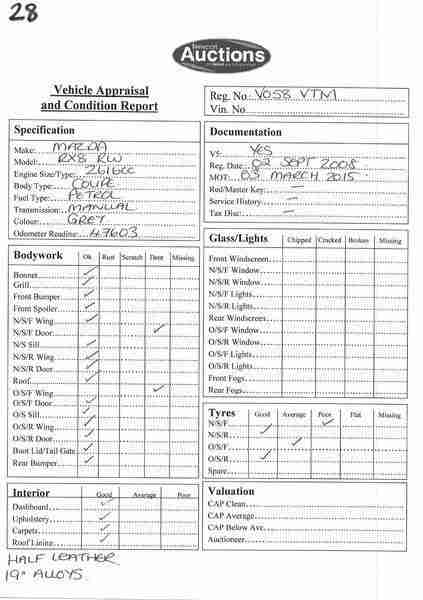 28
Newcast
Auctions
Vehicle Appraisal
and Condition Report
Reg. No. VO58 VTM
Vin. No
Specification
Make: MAZDA
Model: RX8 RW
Engine Size/Type: 2616cc
Body Type: COUPE
Fuel Type: PETROL
Transmission: MANUAL
Colour: GREY
Odometer Reading: 47603
Documentation
V5: YES
Reg. Date: 02 SEPT 2008
MOT: 03 MARCH 2015
Red/Master Key: —
Service History —
Tax Disc: —
Bodywork Ok Rust Scratch Dent Missing
Bonnet ✓
Grill ✓
Front Bumper ✓
Front Spoiler ✓
N/S/F Wing ✓
N/S/F Door ✓
N/S Sill ✓
N/S/R Wing ✓
N/S/R Door ✓
Roof ✓
O/S/F Wing ✓
O/S/F Door ✓
O/S Sill ✓
O/S/R Wing ✓
O/S/R Door ✓
Boot Lid/Tail Gate ✓
Rear Bumper ✓
Glass/Lights Chipped Cracked Broken Missing
Front Windscreen
N/S/F Window
N/S/R Window
N/S/F Lights
N/S/R Lights
Rear Windscreen
O/S/F Window
O/S/R Window
O/S/F Lights
O/S/R Lights
Front Fogs
Rear Fogs
Tyres Good Average Poor Flat Missing
N/S/F ✓
N/S/R ✓
O/S/F ✓
O/S/R ✓
Spare
Interior Good Average Poor
Dashboard ✓
Upholstery ✓
Carpets ✓
Roof Lining ✓
Valuation
CAP Clean
CAP Average
CAP Below Ave
Auctioneer
HALF LEATHER
19" ALLOYS